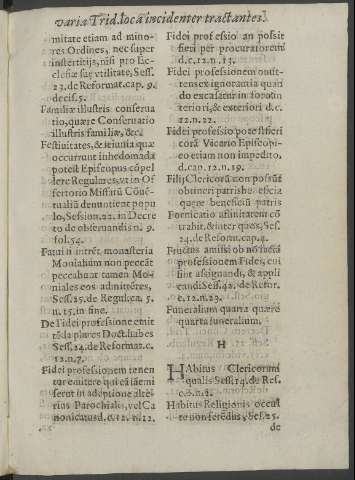 varia Trid. locã incidenter tractantes.
mitate etiam ad mino-
res Ordines, nec super
insterstitijs, nisi pro Ec-
clesiæ suæ vtilitate, Sess.
23. de Reformat. cap. 9.
decis. 5.
Familiæ illustris conserua
tio, quære Conseruatio
illustris familiæ, &c.
Festiuitates, & ieiunia quæ
occurrunt in hedomada
potest Episcopus cõpel
lere Regulares, vt in Of
fertorio Missarũ Cõuẽ-
tualiũ denuntient popu
lo, Session. 22. in Decre
to de obseruandis n. 9.
fol. 54.
Fatui nintrẽt, monasteria
Monialium non peccãt
peccabunt tamen Mo-
niales eos admitẽtes,
Sess. 25. de Regul. ca. 5.
n. 15. in fine.
De Fidei professione emit
tẽda plures Doct. habes
Sess. 24. de Reformat. c.
12. n. 7.
Fidei professionem tenen
tur emitere qui eã iã emi
serat in adeptione alte-
rius Parochialis, vel Ca
nonicatus d. c. 12. n. 12.
Fidei professio an possit
fieri per procuratorem
d. c. 12. n. 13.
Fidei professionem omit-
tentes ignorantia quan
do excusent in foro in
teriori, & exteriori d. c.
12. n. 22.
Fidei professio potest fieri
corã Vicario Episcopi-
eo etiam non impedito,
d. cap. 12. n. 19.
Filij Clericorũ non possũt
obtineri patris beneficia
quæue beneficiũ patris
Fornicatio affinitatem cõ
trahit, & inter quos, Ses.
24. de Reform. cap. 4.
Fructus amissi ob nõ factã
professionem Fidei, cui
sint assignandi, & appli
candi Sess. 42. de Refor.
c. 12. n. 23.
Funeralium quarta quære
quarta funeralium.
H
HAbitus Clericorum
qualis Sess. 14. de Ref.
c. 6. n. 2.
Habitus Religionis occul
te non ferẽdus, Ses. 25.
de